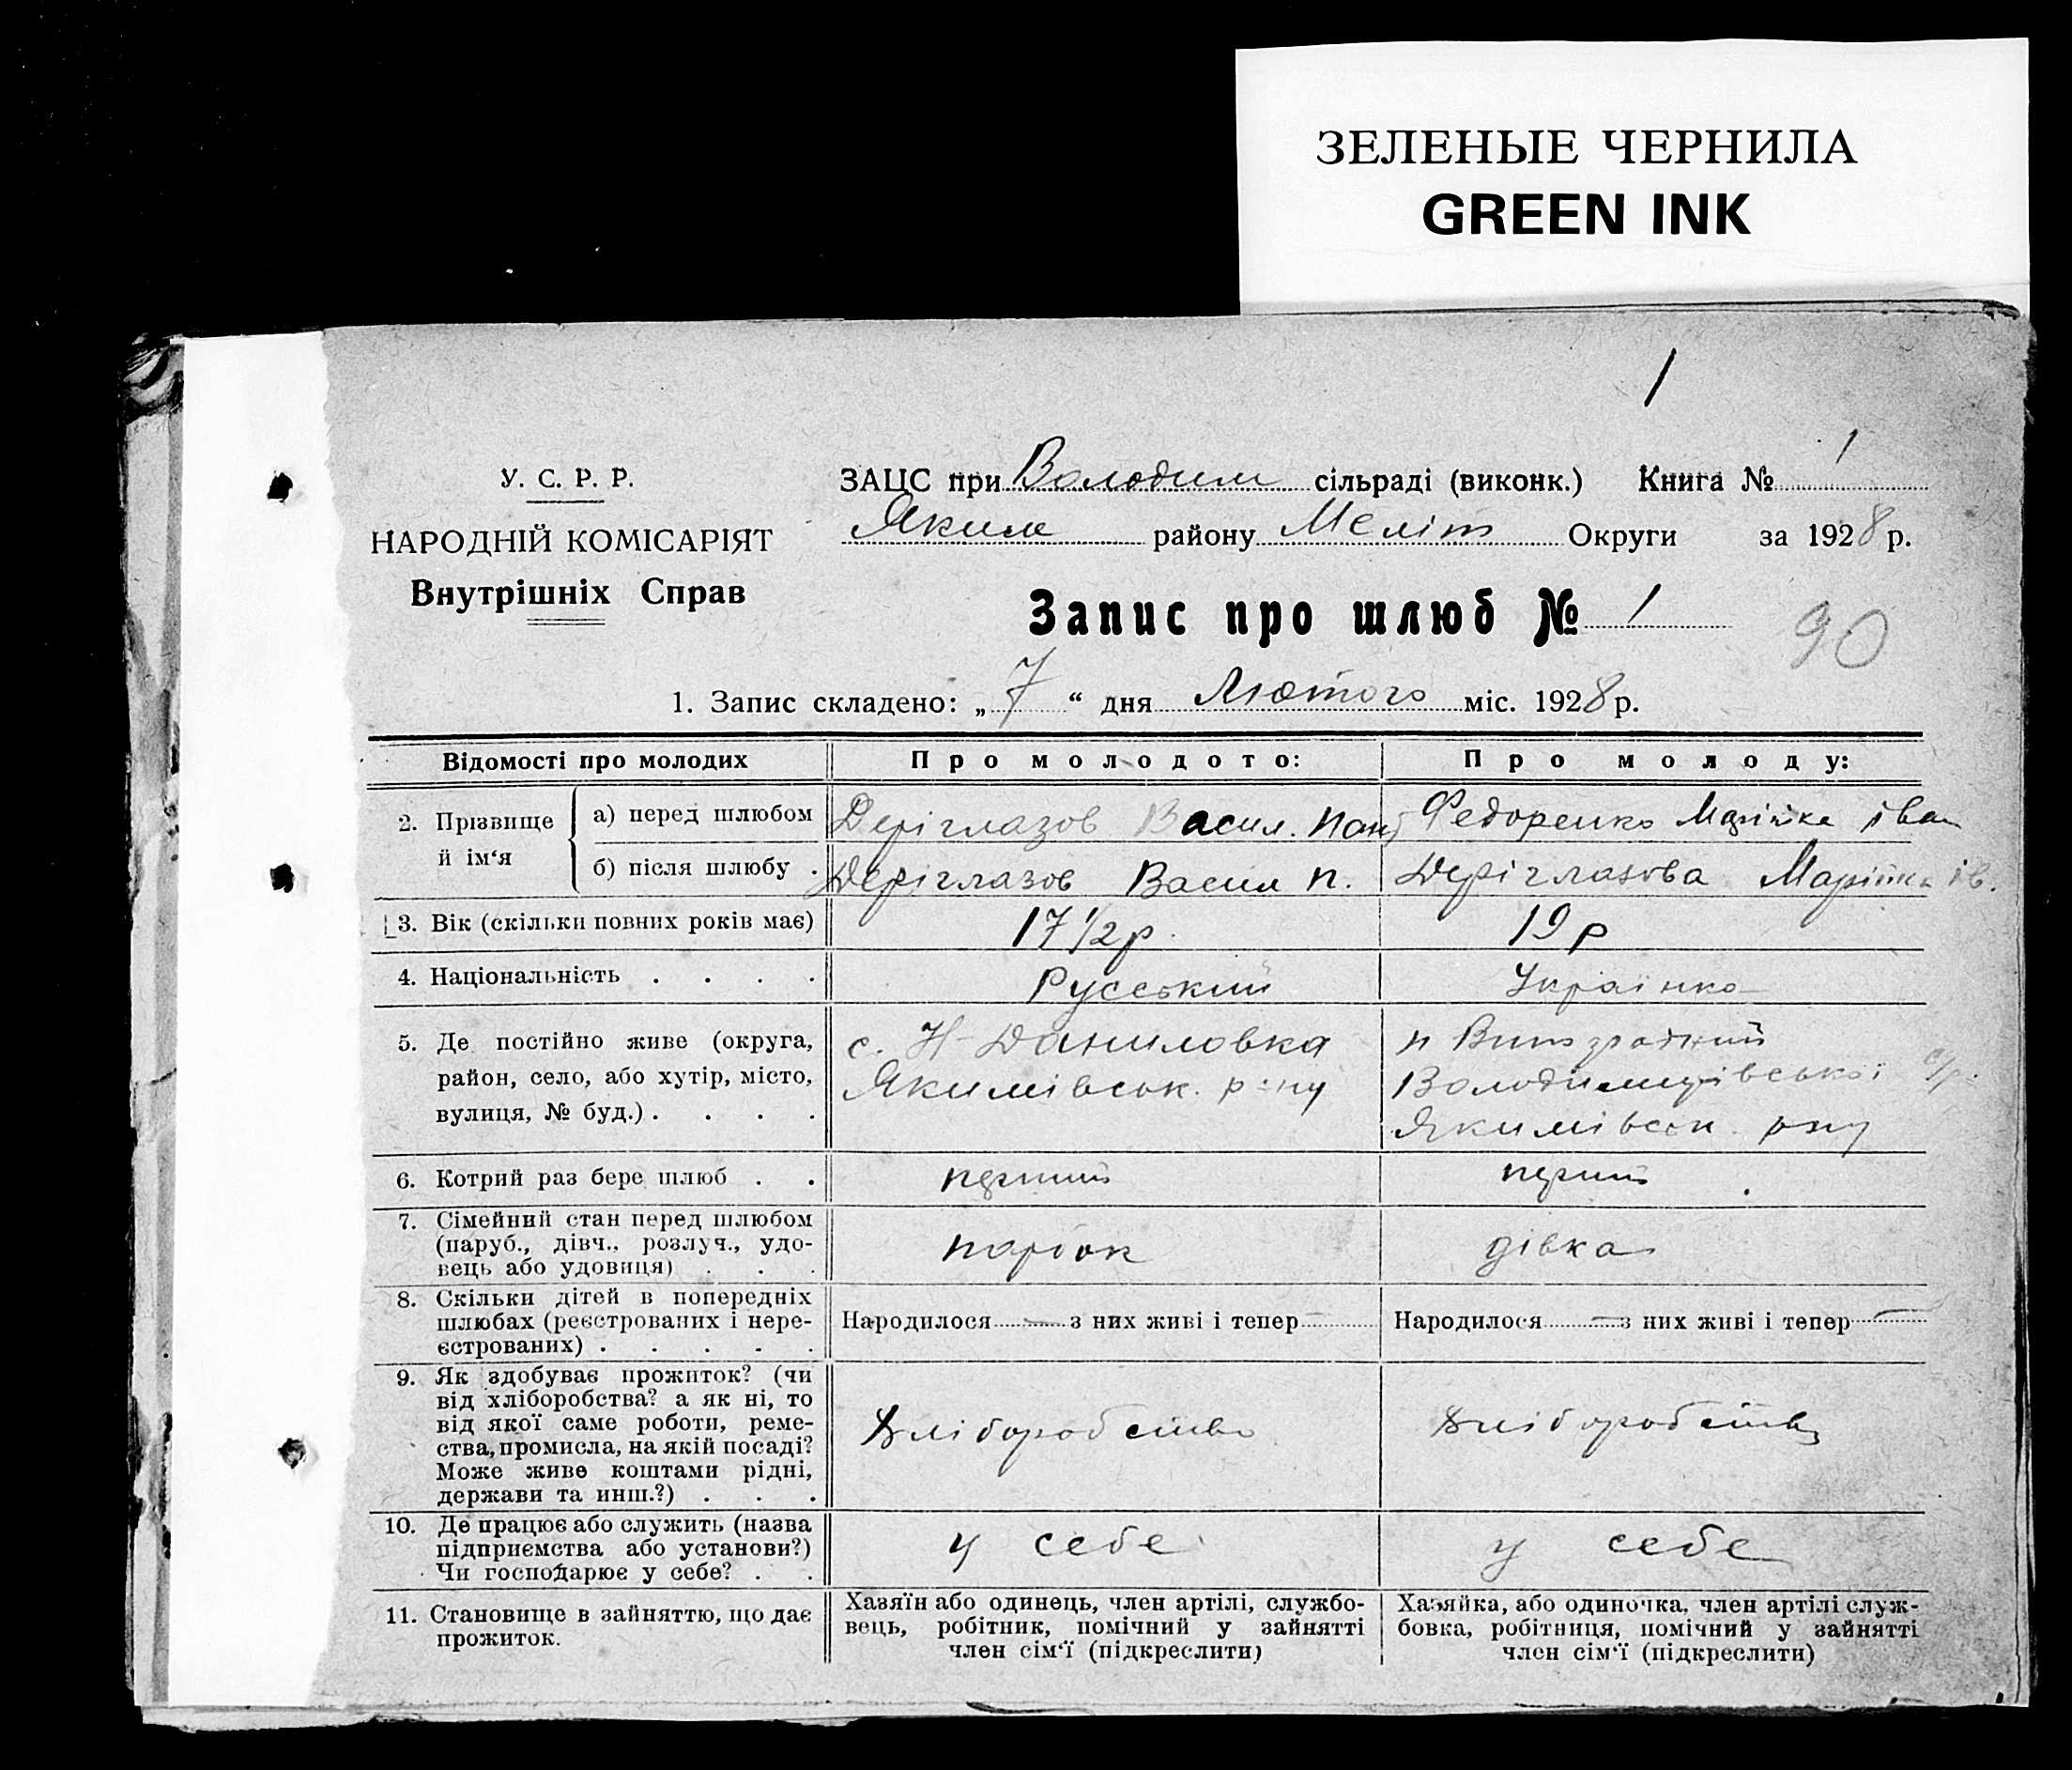 ЗЕЛЕНЫЕ ЧЕРНИЛА
GREEN INK
1
У. С. Р. Р.
НАРОДНІЙ КОМІСАРІЯТ
Внутрішніх Справ
ЗАЦС при Володим сільраді (виконк.) Книга № 1
Яким района Меліт Округи за 1928 р.
Запис про шлюб № 1
90
1. Запис складено: „7“ дня Лютого міс. 1928 р.
Відомості про молодих
Про молодого:
Про молоду:
2. Прізвище й ім‘я
а) перед шлюбом
Деріглазов Васил. Пант
Федоренко Марійка Іван
б) після шлюбу .
Деріглазов Васил П.
Деріглазова Марійка Ів.
3. Вік (скільки повних років має)
17 1/2 р.
19 р
4. Національність . . . .
Русський
Українка
5. Де постійно живе (округа,
район, село, або хутір, місто,
вулиця, № буд.) . . . .
с. Н-Даниловка
Якимівськ. р-ну
п Виноградний
Володимирівської с/р.
Якимівськ. рну
6. Котрий раз бере шлюб . .
перший
перший
7. Сімейний стан перед шлюбом
(паруб., дівч., розлуч., удо-
вець або удовиця) . . .
парбок
дівка
8. Скільки дітей в попередніх
шлюбах (реєстрованих і нере-
єстрованих) . . . . .
Народилося — з них живі і тепер —
Народилося — з них живі і тепер —
9. Як здобуває прожиток? (чи
від хліборобства? а як ні, то
від якої саме роботи, реме-
ства, промисла, на якій посаді?
Може живе коштами рідні,
держави та инш.?) . . .
Хліборобство
Хліборобство
10. Де працює або служить (назва
підприємства або установи?)
Чи господарює у себе? . .
у себе
у себе
11. Становище в зайняттю, що дає
прожиток.
Хазяїн або одинець, член артілі, службо-
вець, робітник, помічний у зайнятті
член сім‘ї (підкреслити)
Хазяйка, або одиночка, член артілі служ-
бовка, робітниця, помічний у зайнятті
член сім‘ї (підкреслити)